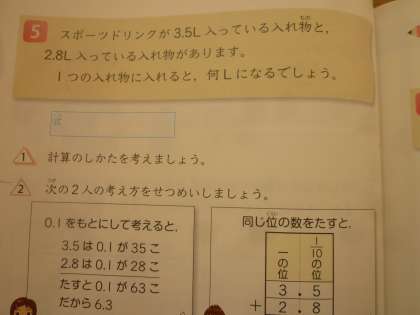 5
スポーツドリンクが 3.5L 入っている入れ物と,
もの
2.8L 入っている入れ物があります。
1つの入れ物に入れると, 何Lになるでしょう。
式
1 計算のしかたを考えましょう。
2 次の2人の考え方をせつめいしましょう。
0.1をもとにして考えると,
3.5 は 0.1 が 35 こ
2.8 は 0.1 が 28 こ
たすと 0.1 が 63 こ
だから 6.3
同じ位の数をたすと,
一の位 1/10の位
3 . 5
+ 2 . 8